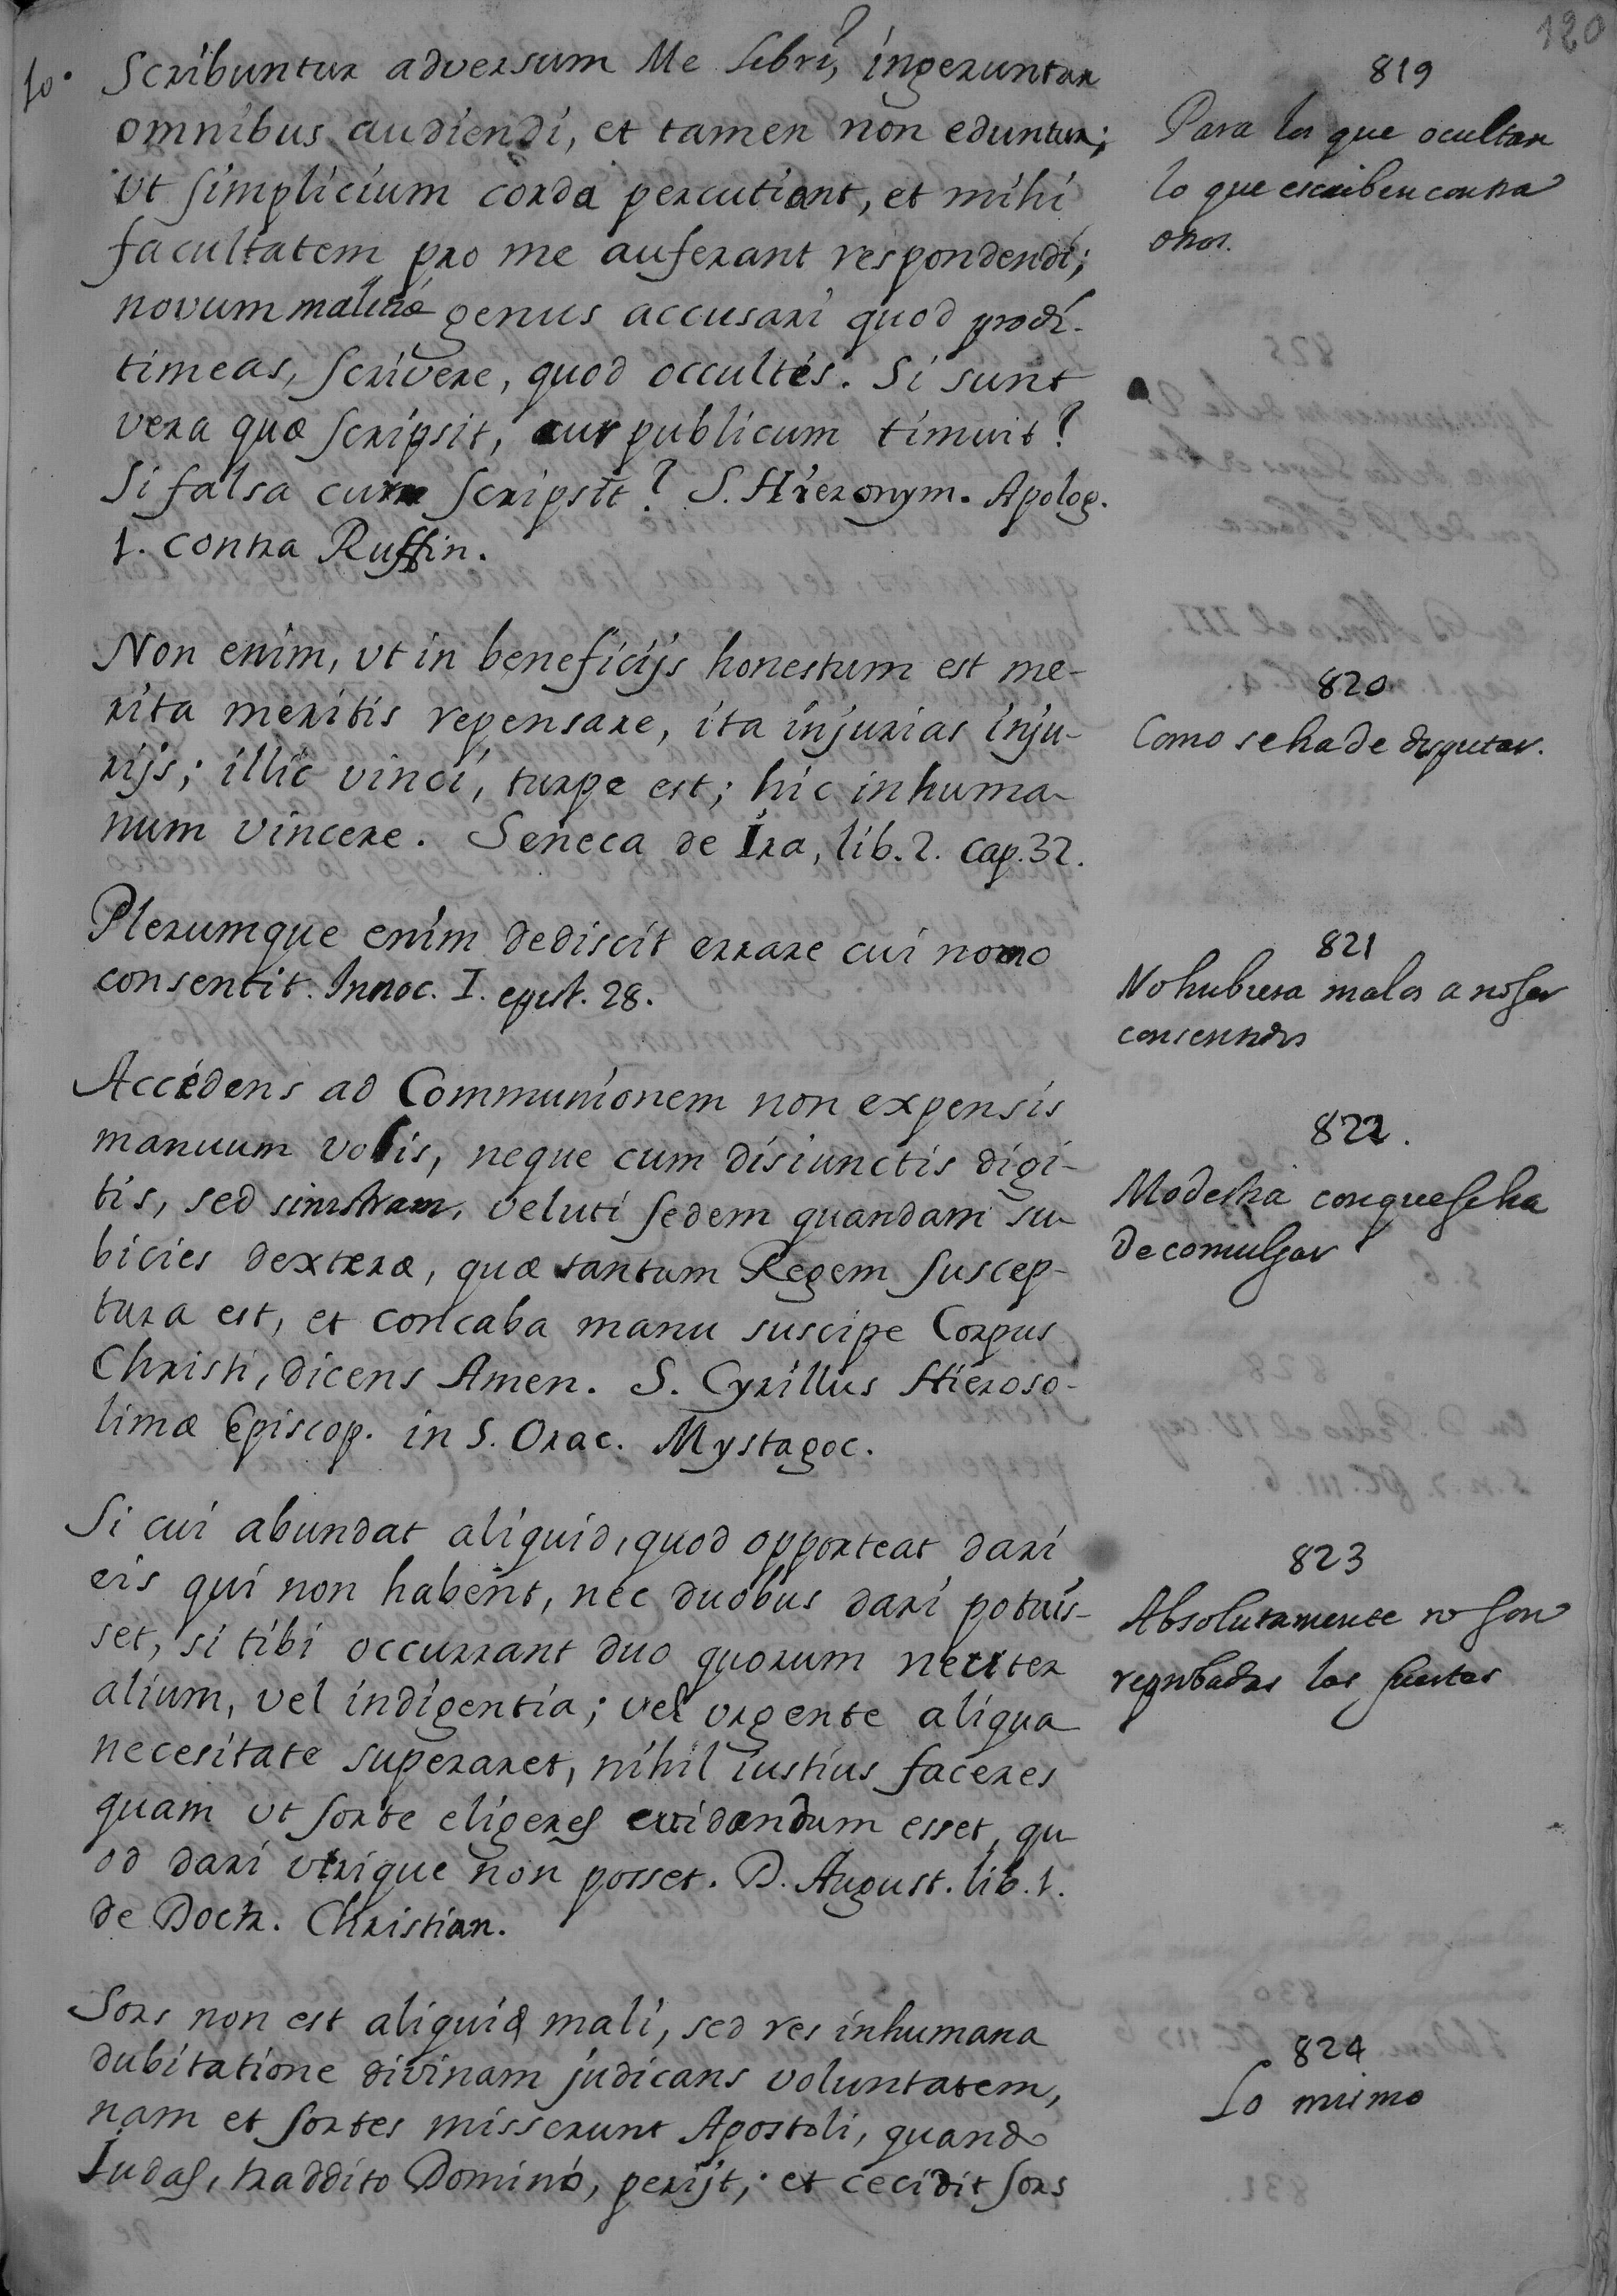 120
fo. Scribuntur adversum Me libri, ingeruntur
omnibus audiendi, et tamen non eduntur;
ut simplicium corda percutiant, et mihi
facultatem pro me auferant respondendi;
novum malitiæ genus accusari quod prodi
timeas, scrivere, quod occultes. Si sunt
vera quæ scripsit, cur publicum timuit?
Si falsa cur scripsit? S. Hieronym. Apolog.
1. contra Ruffin.
819
Para los que ocultan
lo que escriben contra
otros.
Non enim, ut in beneficijs honestum est me-
rita meritis repensare, ita injurias inju-
rijs; illic vinci, turpe est; hic inhuma-
num vincere. Seneca de Ira, lib. 2. cap. 32.
820
Como se ha de disputar.
Plerumque enim dediscit errare cui nemo
consentit. Innoc. I. epist. 28.
821
No hubiera malos a no ser
consentidos
Accedens ad Communionem non expensis
manuum volis, neque cum disiunctis digi-
tis, sed sinistram, veluti sedem quandam su-
bicies dexteræ, quæ tantum Regem suscep-
tura est, et concaba manu suscipe Corpus
Christi, dicens Amen. S. Cyrillus Hieroso-
limæ Episcop. in S. Orac. Mystagoc.
822.
Modestia con que se ha
de comulgar
Si cui abundat aliquid, quod opporteat dari
eis qui non habent, nec duobus dari potuis-
set, si tibi occurrant duo quorum neuter
alium, vel indigentia; vel urgente aliqua
necesitate superaret, nihil iustius faceres
quam ut sorte eligeres cui dandum esset, qu
od dari utrique non posset. D. August. lib. 1.
de Doctr. Christian.
823
Absolutamente no son
reprobadas las suertes
Sors non est aliquid mali, sed res inhumana
dubitatione divinam judicans voluntatem,
nam et sortes misserunt Apostoli, quando
Judas, traddito Domino, perijt; et cecidit sors
824
Lo mismo